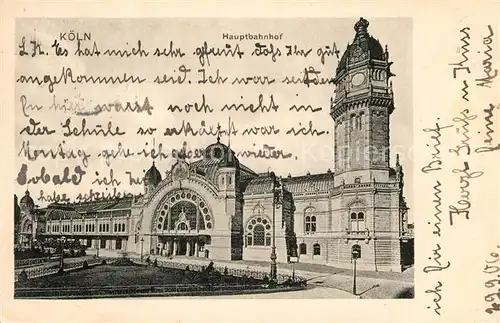 KÖLN
Hauptbahnhof
L. N. Es hat mich sehr gefreut daß Ihr gut
angekommen seid. Ich war seitdem
noch nicht in
der Schule so erkältet war ich
Montag gehe ich aber wieder.
Sobald ich
schreibe
ich Ein einen Brief.
Herzl. Gruß u. Kuss
eine Maria
29.9.06